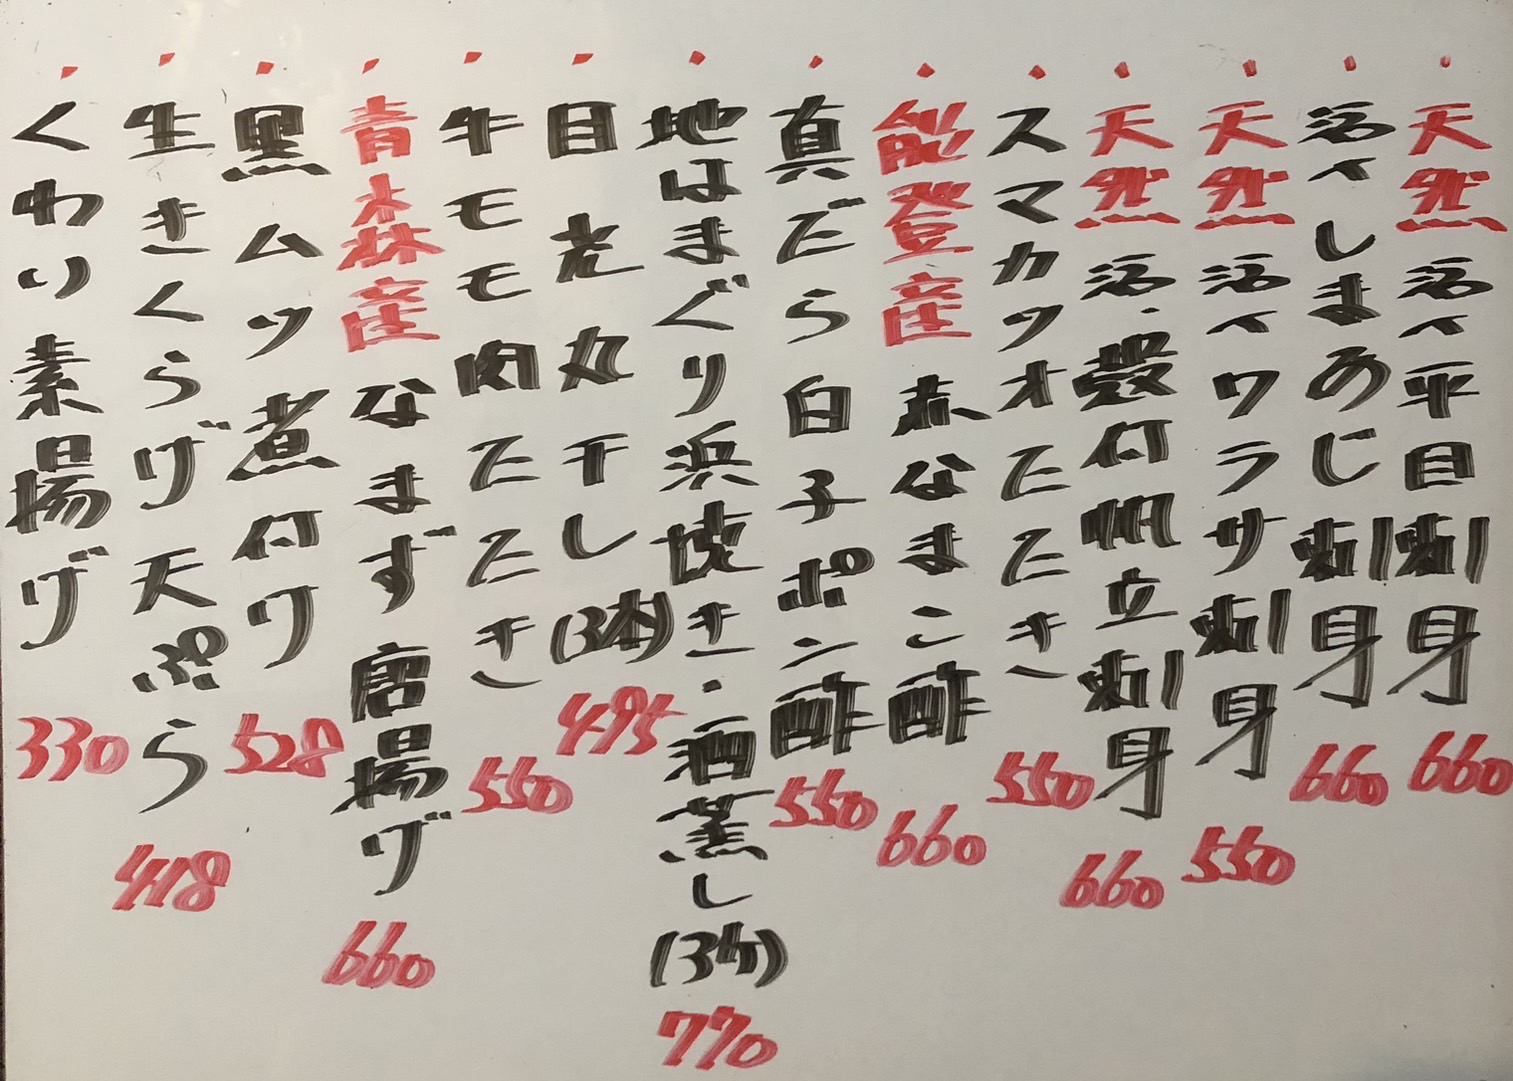 ・天然活〆平目刺身 660
・活〆しまあじ刺身 660
・天然活〆ワラサ刺身 550
・天然活・殻付帆立刺身 660
・スマカツオたたき 550
・能登産赤なまこ酢 660
・真だら白子ポン酢 550
・地はまぐり浜焼き・酒蒸し(3ケ) 770
・目光丸干し(3本) 495
・牛モモ肉たたき 550
・青森産なまず唐揚げ 660
・黒ムツ煮付ケ 528
・生きくらげ天ぷら 418
・くわい素揚げ 330